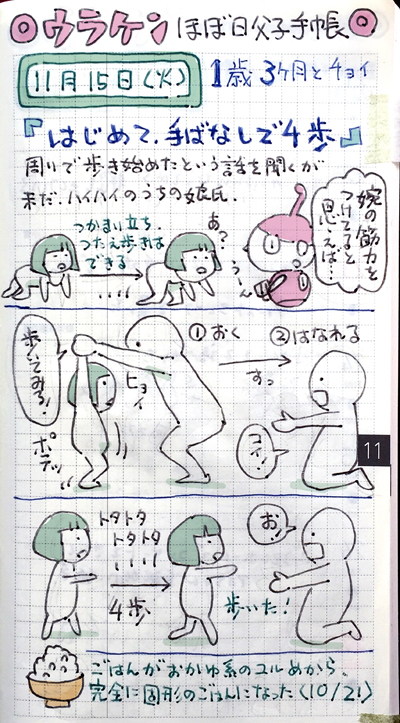 ◎ウラケン ほぼ日父子手帳◎
11月15日(火)
1歳3ヶ月とチョイ
『はじめて、手ばなしで4歩』
周りで歩き始めたという話を聞くが
未だ、ハイハイのうちの娘氏.
つかまい立ち、
つたえ歩きは
できる
‥‥
あ?
うーん
娩の筋力を
つけてると
思えば…
①おく
②はなれる
すっ
歩いてみろ!
ヒョイ
ポテッ
コイ!
11
トタトタ
トタトタ
4歩、
歩いた!
お!
ごはんがおかゆ系のユルめから、
完全に固形のごはんになった(10/21)